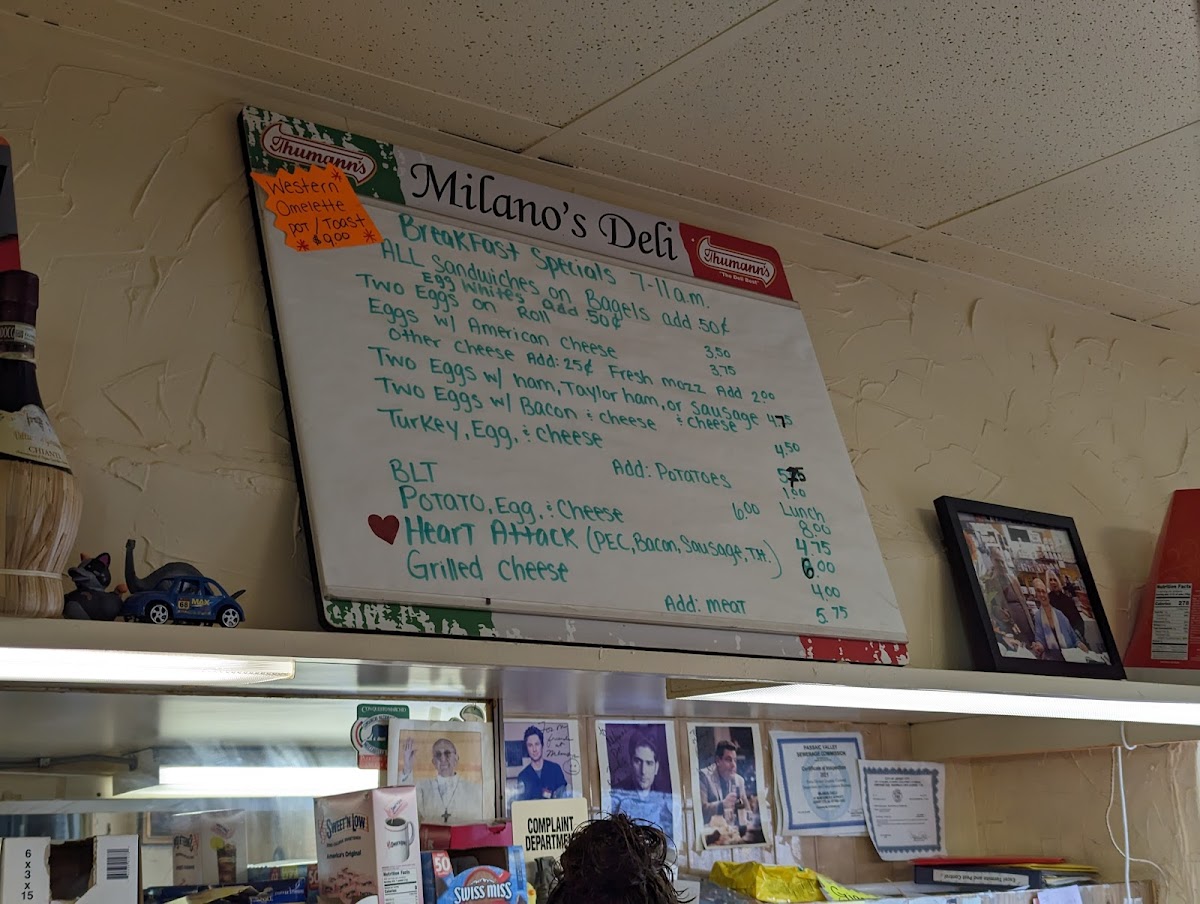 Thumann's
Milano's Deli
Thumann's
"The Deli Best"
Western
Omelette
pot / Toast
$9.00
Breakfast Specials 7-11 a.m.
ALL Sandwiches on Bagels add 50¢
Egg Whites add 50¢
Two Eggs on Roll 3.50
Eggs w/ American Cheese 3.75
Other Cheese Add: 25¢ Fresh mozz Add 2.00
Two Eggs w/ ham, Taylor ham, or Sausage & cheese 4.75
Two Eggs w/ Bacon & cheese 4.50
Turkey, Egg, & Cheese 5.75
Add: Potatoes 1.00
BLT 6.00 Lunch 8.00
Potato, Egg, & Cheese 4.75
Heart Attack (PEC, Bacon, Sausage, T.H.) 6.00
Grilled Cheese 4.00
Add: meat 5.75
CHIANTI
68 MAX
Nutrition Facts
270
CONGRATULATIONS
PASSAIC VALLEY
SEWERAGE COMMISSION
COMPLAINT
DEPARTMENT
SWEET'N LOW
Nutrition Facts
50
SWISS MISS
6 x 3 x 15